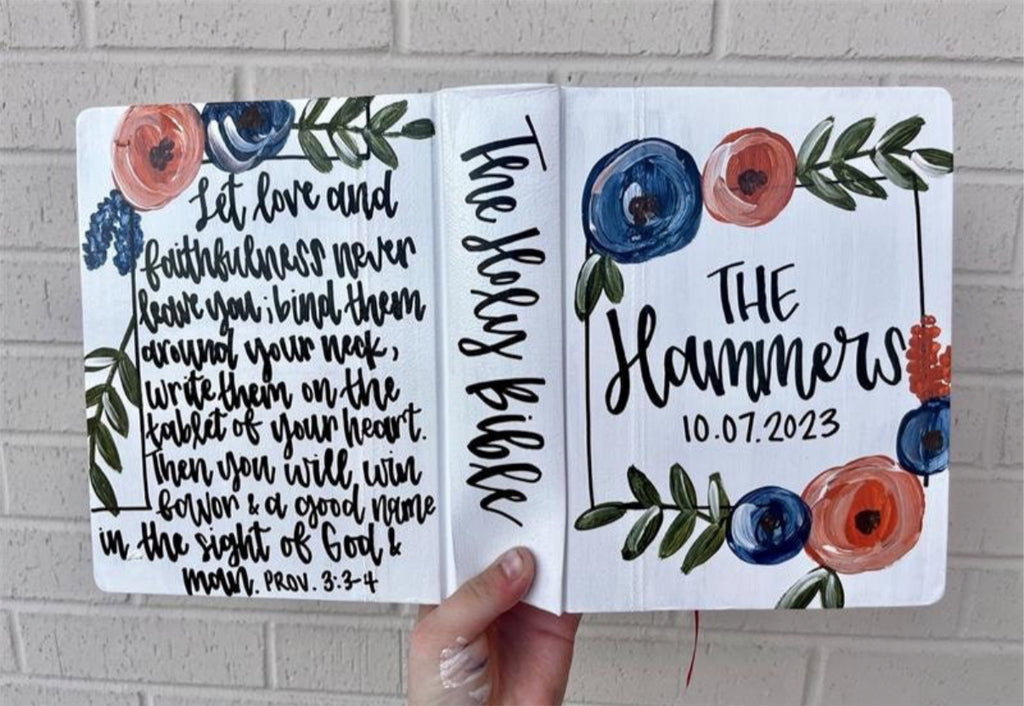 Let love and
faithfulness never
leave you; bind them
around your neck,
write them on the
tablet of your heart.
Then you will win
favor & a good name
in the sight of God &
man. PROV. 3:3-4
The Holy Bible
THE
Hammers
10.07.2023